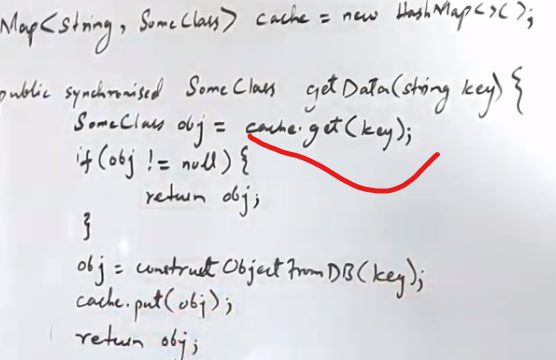 Map<String, SomeClass> cache = new HashMap<>();
public synchronised SomeClass getData(string key) {
SomeClass obj = cache.get(key);
if (obj != null) {
return obj;
}
obj = constructObjectFromDB(key);
cache.put(obj);
return obj;